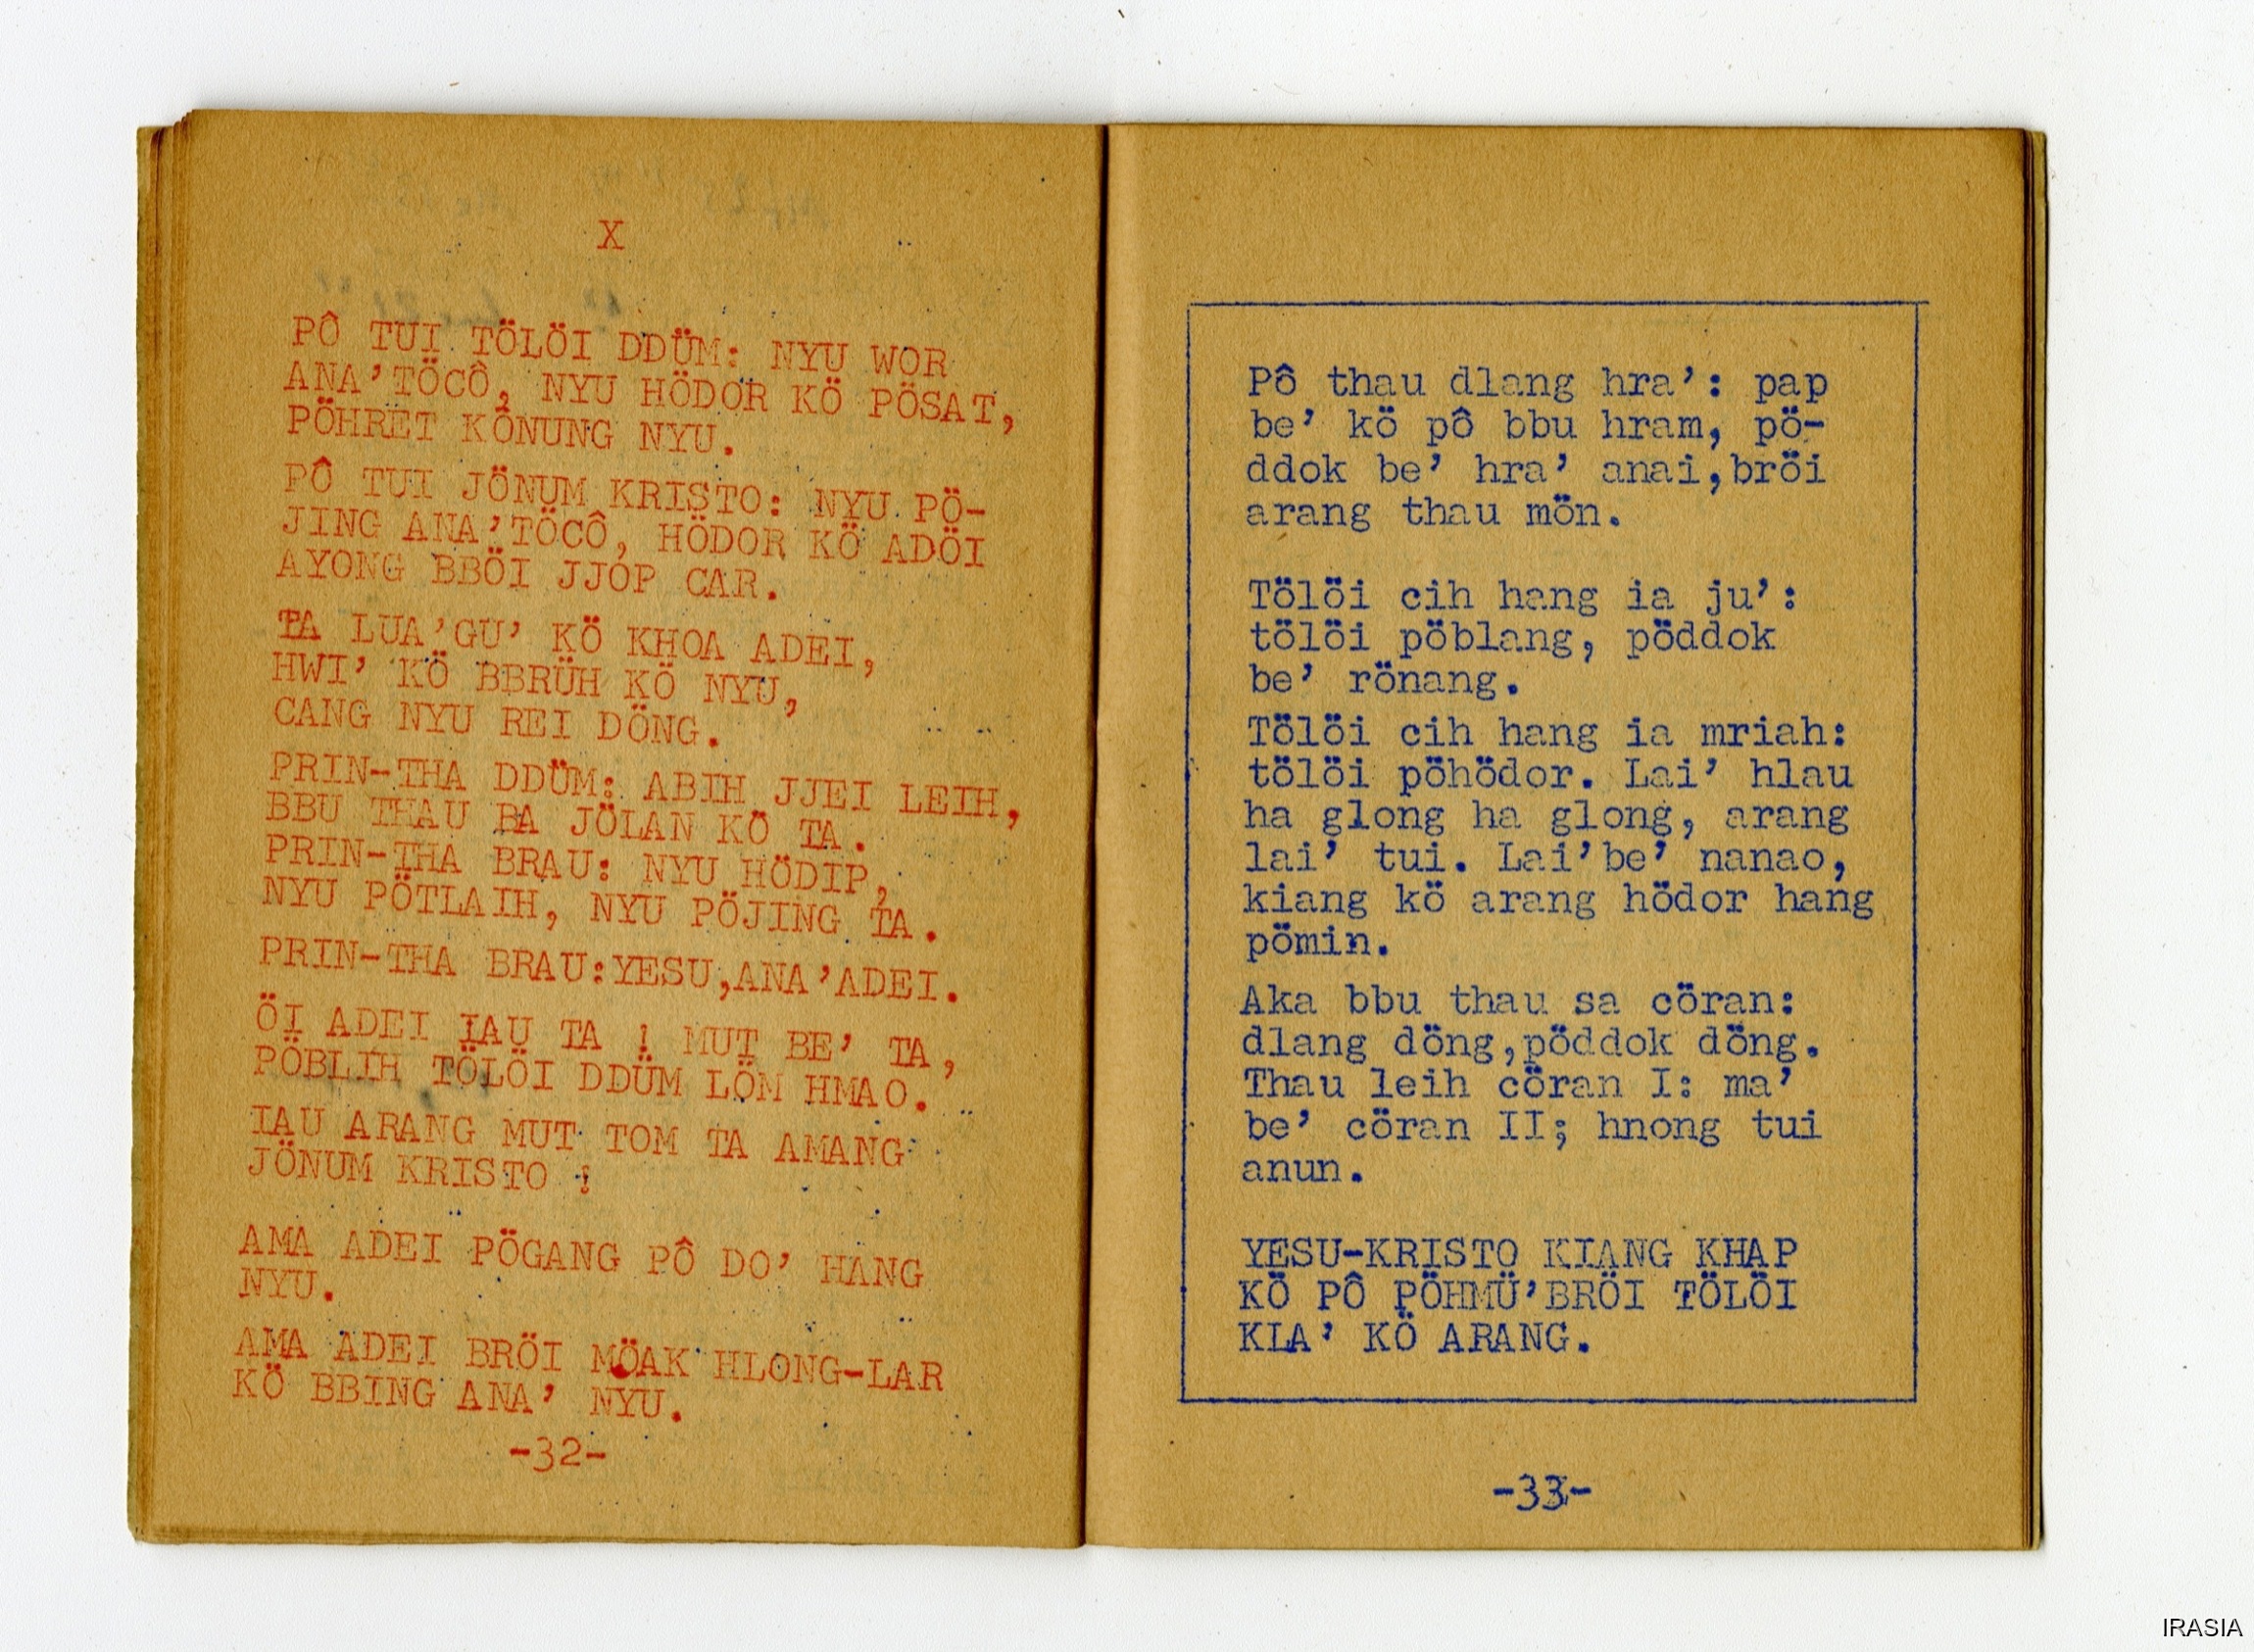 X
PÔ TUI TÖLÖI DDÜM: NYU WOR
ANA'TÖCÔ, NYU HÖDOR KÖ PÖSAT,
PÖHRET KÖNUNG NYU.
PÔ TUI JÖNUM KRISTO: NYU PÖ-
JING ANA'TÖCÔ, HÖDOR KÖ ADÖI
AYONG BBÖI JJOP CAR.
TA LUA'GU' KÖ KHOA ADEI,
HWI' KÖ BBRÜH KÖ NYU,
CANG NYU REI DÖNG.
PRIN-THA DDÜM: ABIH JJEI LEIH,
BBU THAU BA JÖLAN KÖ TA.
PRIN-THA BRAU: NYU HÖDIP,
NYU PÖTLAIH, NYU PÖJING TA.
PRIN-THA BRAU:YESU,ANA'ADEI.
ÖI ADEI IAU TA ! MUT BE' TA,
PÖBLIH TÖLÖI DDÜM LÖM HMAO.
IAU ARANG MUT TOM TA AMANG
JÖNUM KRISTO !
AMA ADEI PÖGANG PÔ DO' HANG
NYU.
AMA ADEI BRÖI MÖAK HLONG-LAR
KÖ BBING ANA' NYU.
-32-
Pô thau dlang hra': pap
be' kö pô bbu hram, pö-
ddok be' hra' anai,bröi
arang thau mön.
Tölöi cih hang ia ju':
tölöi pöblang, pöddok
be' rönang.
Tölöi cih hang ia mriah:
tölöi pöhödor. Lai' hlau
ha glong ha glong, arang
lai' tui. Lai'be' nanao,
kiang kö arang hödor hang
pömin.
Aka bbu thau sa cöran:
dlang döng,pöddok döng.
Thau leih cöran I: ma'
be' cöran II; hnong tui
anun.
YESU-KRISTO KIANG KHAP
KÖ PÔ PÖHMÜ'BRÖI TÖLÖI
KLA' KÖ ARANG.
-33-
IRASIA